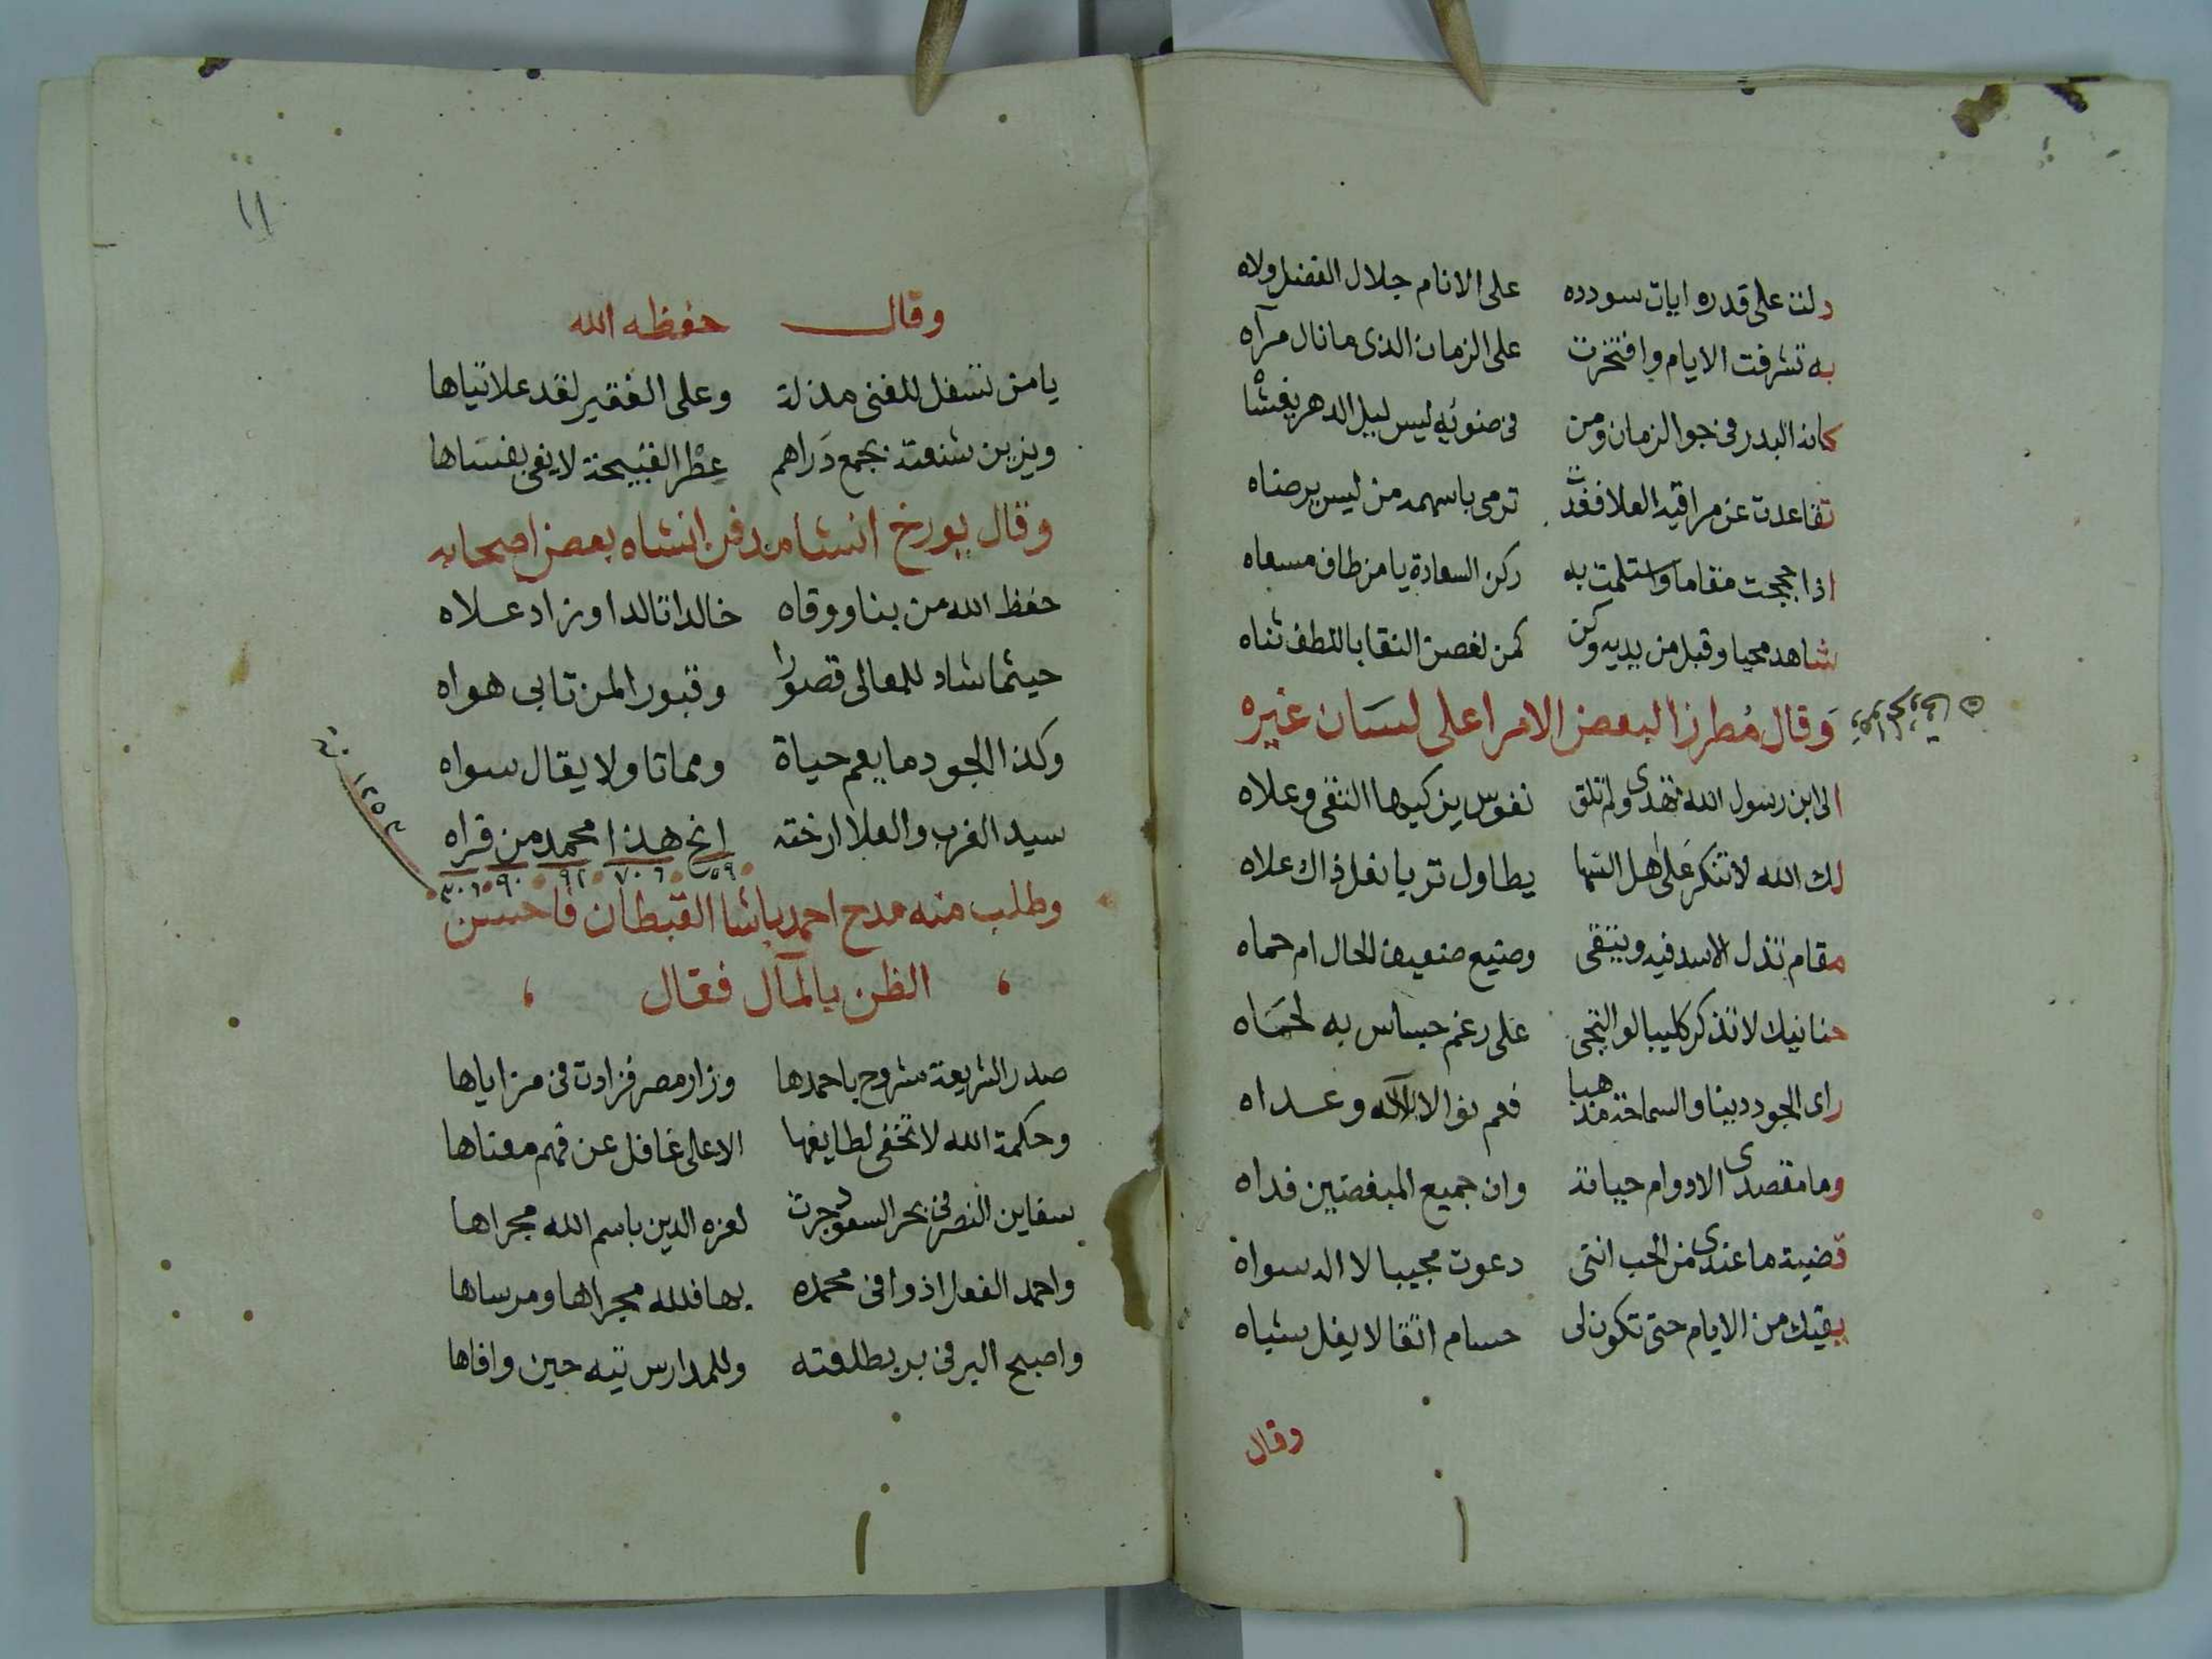 دلت على قدره ايات سودده على الانام جلال الفضل ولاه
به تشرفت الايام وافتخرت على الزمان الذى ما نال مرآه
كانه البدر فى جو الزمان ومن فى ضوئه ليس ليل الدهر يغشاه
تقاعدت عن مراقيه العلا فغدت ترمى باسهمه من ليس يرضاه
اذا حججت مقاما واستلمت به ركن السعادة يا من طاف مسعاه
شاهد محيا وقبل من يديه وكن كمن لغصن النقا باللطف ثناه
وقال مطرزا لبعض الامرا على لسان غيره
الى ابن رسول الله تهدى ولم تلق نفوس يزكيها التقى وعلاه
لك الله لا تنكر على اهل السما يطاول ثريا نعل ذاك علاه
مقام تذل الاسد فيه ويتقى وضيع ضعيف الحال ام حماه
حنانيك لا تذكر كليبا لو التجى على رغم جساس به لحماه
راى الجود دينا والسماحة مذهبا فعم نوالا لاله وعداه
وما مقصدى الا دوام حياته وان جميع المبغضين فداه
قضية ما عندى من الحب اننى دعوت مجيبا لا اله سواه
يقيك من الايام حتى تكون لى حسام اتقا لا يفل شباه
وقال
١١
وقال حفظه الله
يا من تسفل للغنى مذلة وعلى الفقير لقد علا تياها
ويزين شنعته بجمع دراهم عطر القبيحة لا يفى بفساها
وقال يورخ انشا مدفن انشاه بعض اصحابه
حفظ الله من بنا ووقاه خالدا تالدا وزاد علاه
حيثما شاد للمعالى قصورا وقبورا لمن تابى هواه
وكذا الجود ما يعم حياة ومماتا ولا يقال سواه
سيد الغرب والعلا ارخته انح هذا محمد من قراه
٥٩ ٧٠٦ ٩٢ ٩٠ ٣٠٦
سنة ١٢٥٣
وطلب منه مدح احمد باشا القبطان فاحسن
الظن بالمآل فقال
صدر الشريعة مشروح باحمدها وزار مصر فزادت فى مزاياها
وحكمة الله لا تخفى لطايفها الا على غافل عن فهم معناها
سفاين النصر فى بحر السعود جرت لعزه الدين باسم الله مجراها
واحمد الفعل اذ وافى محمده بها فلله مجراها ومرساها
واصبح البر فى بر بطلعته وللمدارس تيه حين وافاها